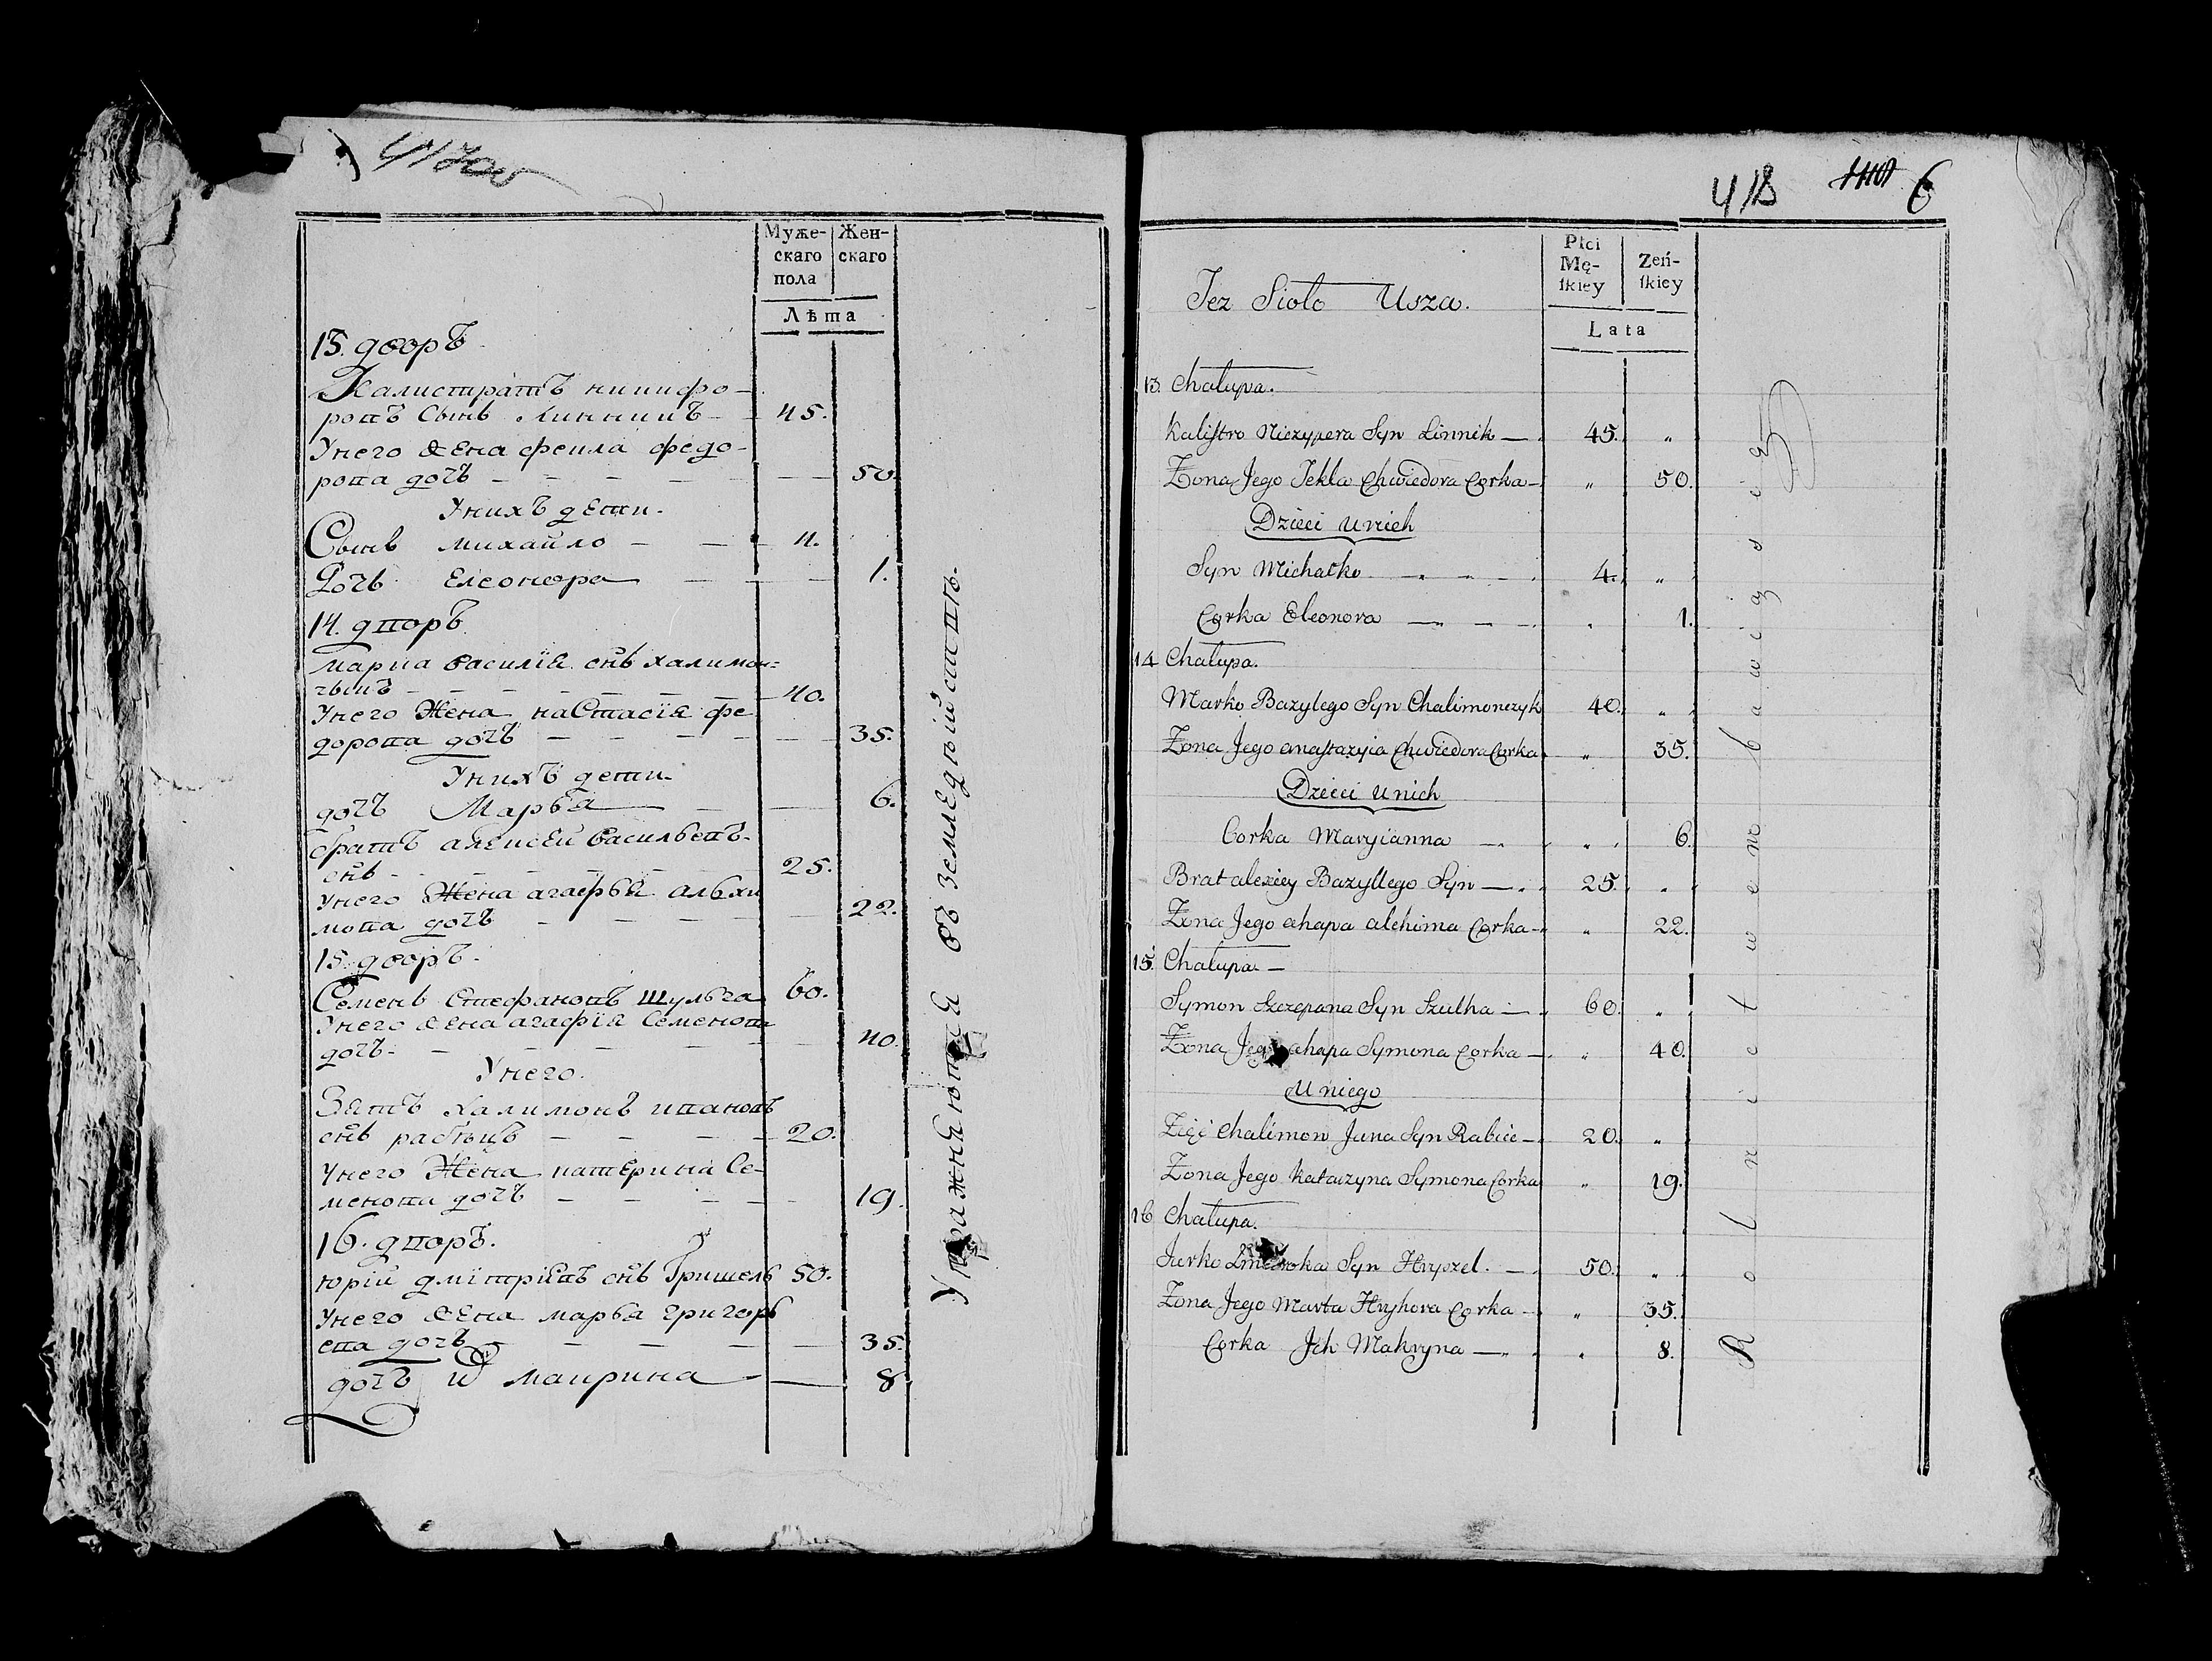 417об
Муже-
скаго
пола
Жен-
скаго
Лѣта
13. дворъ
Калистратъ никифо-
ровъ Сынъ Линникъ 45.
Унего Жена фекла федо-
рова дочь 50.
Унихъ дети.
Сынъ михайло 4.
Дочь Елеонора 1.
14. дворъ
марка василїя снъ халимон-
чыкъ 40.
Унего Жена наСтасїя фе
дорова дочь 35.
Унихъ дети.
дочь Марья 6.
братъ алексей васильевъ
снъ 25.
Унего Жена агафья альхи
мова дочь 22.
15. дворъ.
Семенъ Стефановъ Шульга 60.
Унего жена агафїя Семенова
дочь 40.
Унего.
Зять халимонъ ивановъ
снъ рабыць 20.
Унего Жена катерина Се-
менова дочь 19.
16. дворъ.
юрїй дмїтрїевъ снъ Гришель 50.
Унего жена марья григорь
ева дочь 35.
дочь их макрина 8
Упражняются въ земледѣлїй
418
6
Jez Sioło Usza.
Płci
Mę-
skiey
Zeń-
skiey
Lata
13. Chałupa.
Kalistro Niczypera Syn Linnik 45. "
Zona Jego Tekla Chwiedora Corka " 50.
Dzieci unich
Syn Michałko 4. "
Corka Eleonora " 1.
14 Chałupa.
Marko Bazylego Syn Chalimonczyk 40. "
Zona Jego anastazyia Chwiedora Corka " 35.
Dzieci unich
Corka Maryianna " 6.
Brat alexiey Bazyllego Syn 25. "
Zona Jego ahapa alchima Corka " 22.
15. Chałupa
Symon Szczepana Syn Szulha 60. "
Zona Jego ahapa Symona Corka " 40.
Uniego
Zięć Chalimon Jana Syn Rabiec 20. "
Zona Jego Katarzyna Symona Corka " 19.
16 Chałupa.
Jurko Syn Hryszel. 50. "
Zona Jego Marta Hryhora Corka " 35.
Corka Jch Makryna " 8.
Rolnictwem bawią się